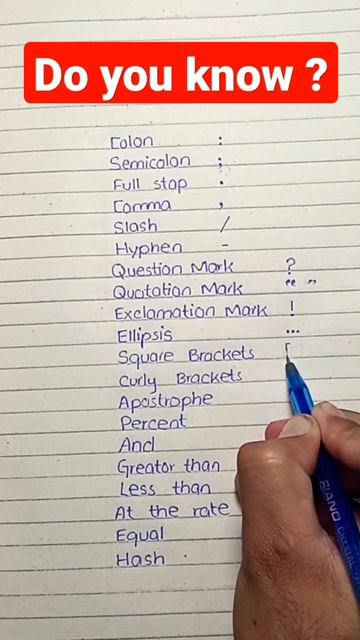 Do you know ?
Colon :
Semicolon ;
Full stop .
Comma ,
Slash /
Hyphen -
Question Mark ?
Quotation Mark “ ”
Exclamation Mark !
Ellipsis ...
Square Brackets [
Curly Brackets
Apostrophe
Percent
And
Greator than
Less than
At the rate
Equal
Hash